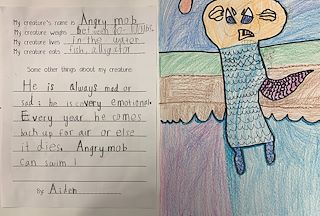 My creature's name is Angry mob
My creature weighs
My creature lives in the water
My creature eats fish, alligator
Some other things about my creature:
He is always mad or
sad: he is very emotional.
Every year he comes
back up for air or else
it dies. Angry mob
can swim!
by: Aiden